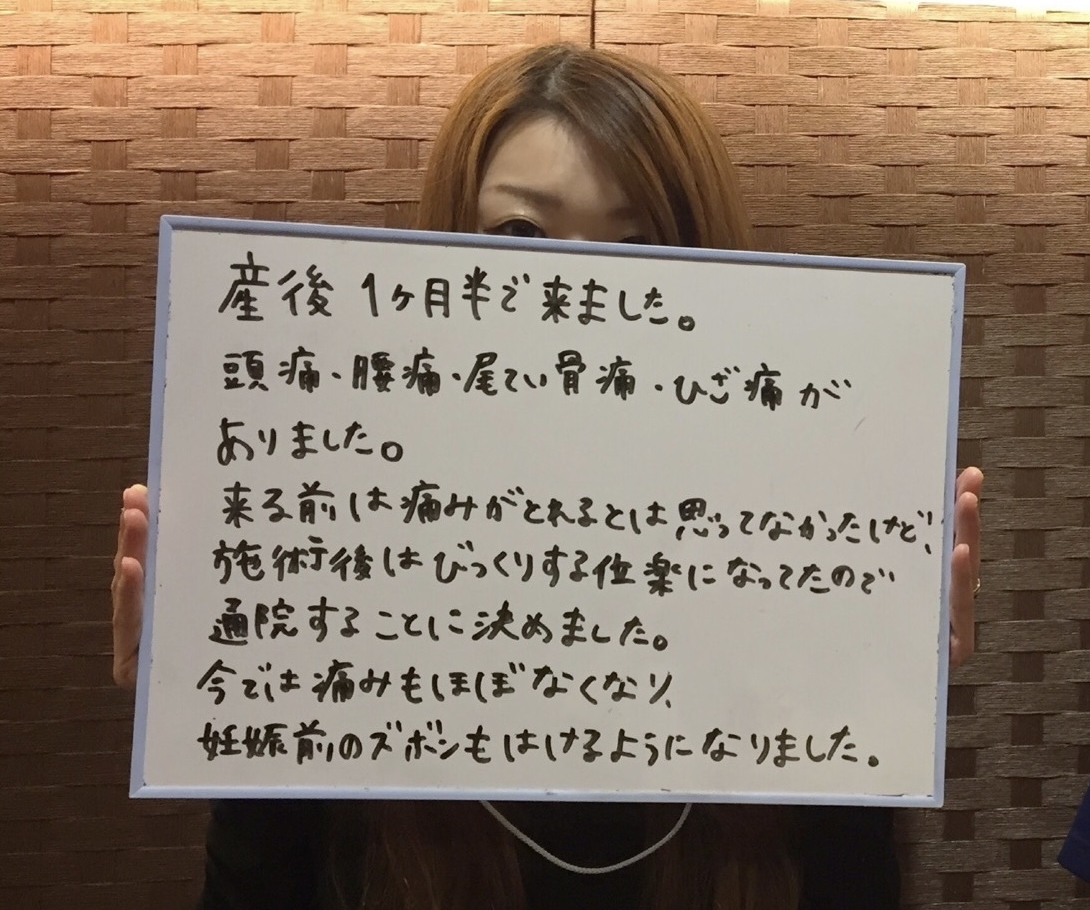 産後1ヶ月半で来ました。
頭痛・腰痛・尾てい骨痛・ひざ痛が
ありました。
来る前は痛みがとれるとは思ってなかったけど、
施術後はびっくりする位楽になってたので
通院することに決めました。
今では痛みもほぼなくなり、
妊娠前のズボンもはけるようになりました。